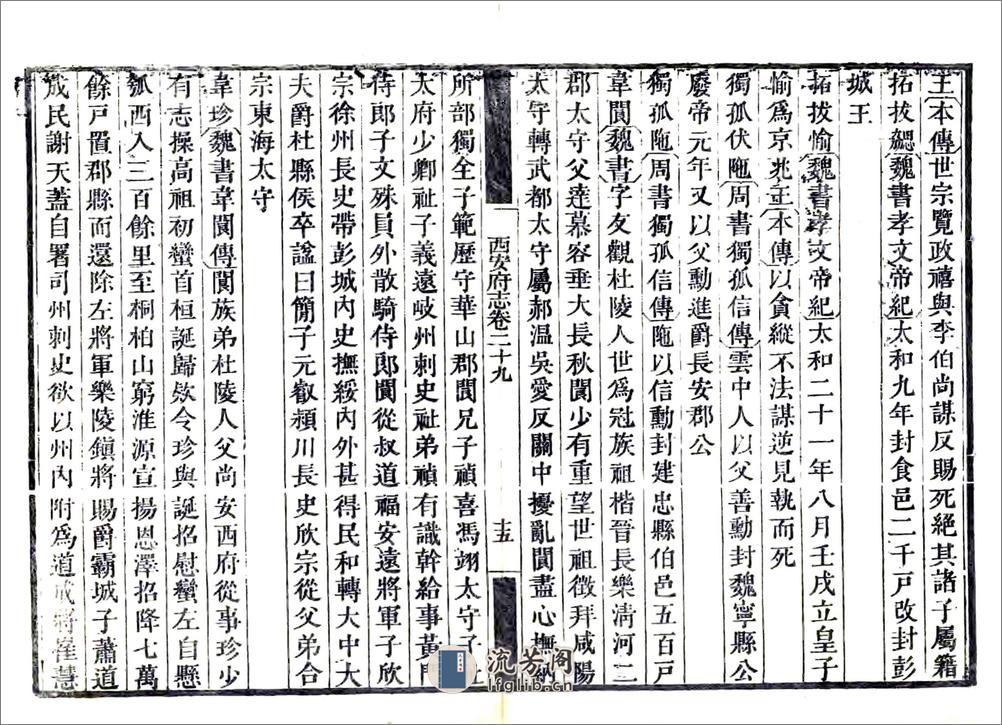 王本傳世宗覽政禧與李伯尚謀反賜死絕其諸子屬籍
拓拔勰魏書孝文帝紀太和九年封食邑二千戸改封彭
城王
拓拔愉魏書孝文帝紀太和二十一年八月壬戌立皇子
愉爲京兆王本傳以貪縱不法謀逆見執而死
獨孤伏陁周書獨孤信傳雲中人以父善勳封魏寧縣公
廢帝元年又以父勳進爵長安郡公
獨孤陁周書獨孤信傳陁以信勳封建忠縣伯邑五百戸
韋閬魏書字友觀杜陵人世爲冠族祖楷晉長樂淸河二
郡太守父逵慕容垂大長秋閬少有重望世祖徵拜咸陽
太守轉武都太守屬郝温吳愛反關中擾亂閬盡心撫納
西安府志卷二十九
十五
所部獨全子範歷守華山郡閬兄子禎喜馮翊太守子祉
太府少卿祉子義遠岐州刺史祉弟禎有識幹給事黃門
侍郎子文殊員外散騎侍郎閬從叔道福安遠將軍子欣
宗徐州長史帶彭城內史撫綏內外甚得民和轉大中大
夫爵杜縣侯卒諡曰簡子元叡頴川長史欣宗從父弟合
宗東海太守
韋珍魏書韋閬傳閬族弟杜陵人父尚安西府從事珍少
有志操高祖初蠻首桓誕歸欵令珍與誕招慰蠻左自縣
瓠西入三百餘里至桐柏山窮淮源宣揚恩澤招降七萬
餘戸置郡縣而還除左將軍樂陵鎮將賜爵霸城子蕭道
成民謝天蓋自署司州刺史欲以州內附爲道成將崔慧
流芳阁
lfglib.cn